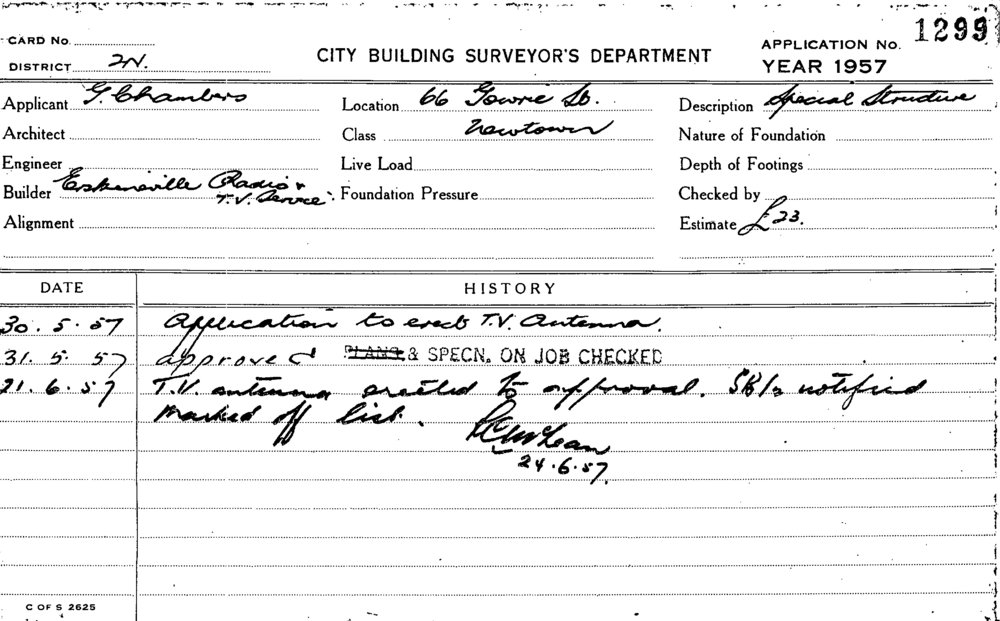 1299
CARD No.
CITY BUILDING SURVEYOR'S DEPARTMENT
APPLICATION No.
DISTRICT 2N.
YEAR 1957
Applicant G. Chambers Location 66 Gowrie St. Description Special Structure
Architect Class Newtown Nature of Foundation
Engineer Live Load Depth of Footings
Builder Erskineville Radio & T.V. Service Foundation Pressure Checked by
Alignment Estimate £23.
DATE HISTORY
30.5.57 Application to erect T.V. Antenna.
31.5.57 approved PLANS & SPECN. ON JOB CHECKED
21.6.57 T.V. antenna erected to approval. notified
Marked off list. McLean
24.6.57.
C OF S 2625